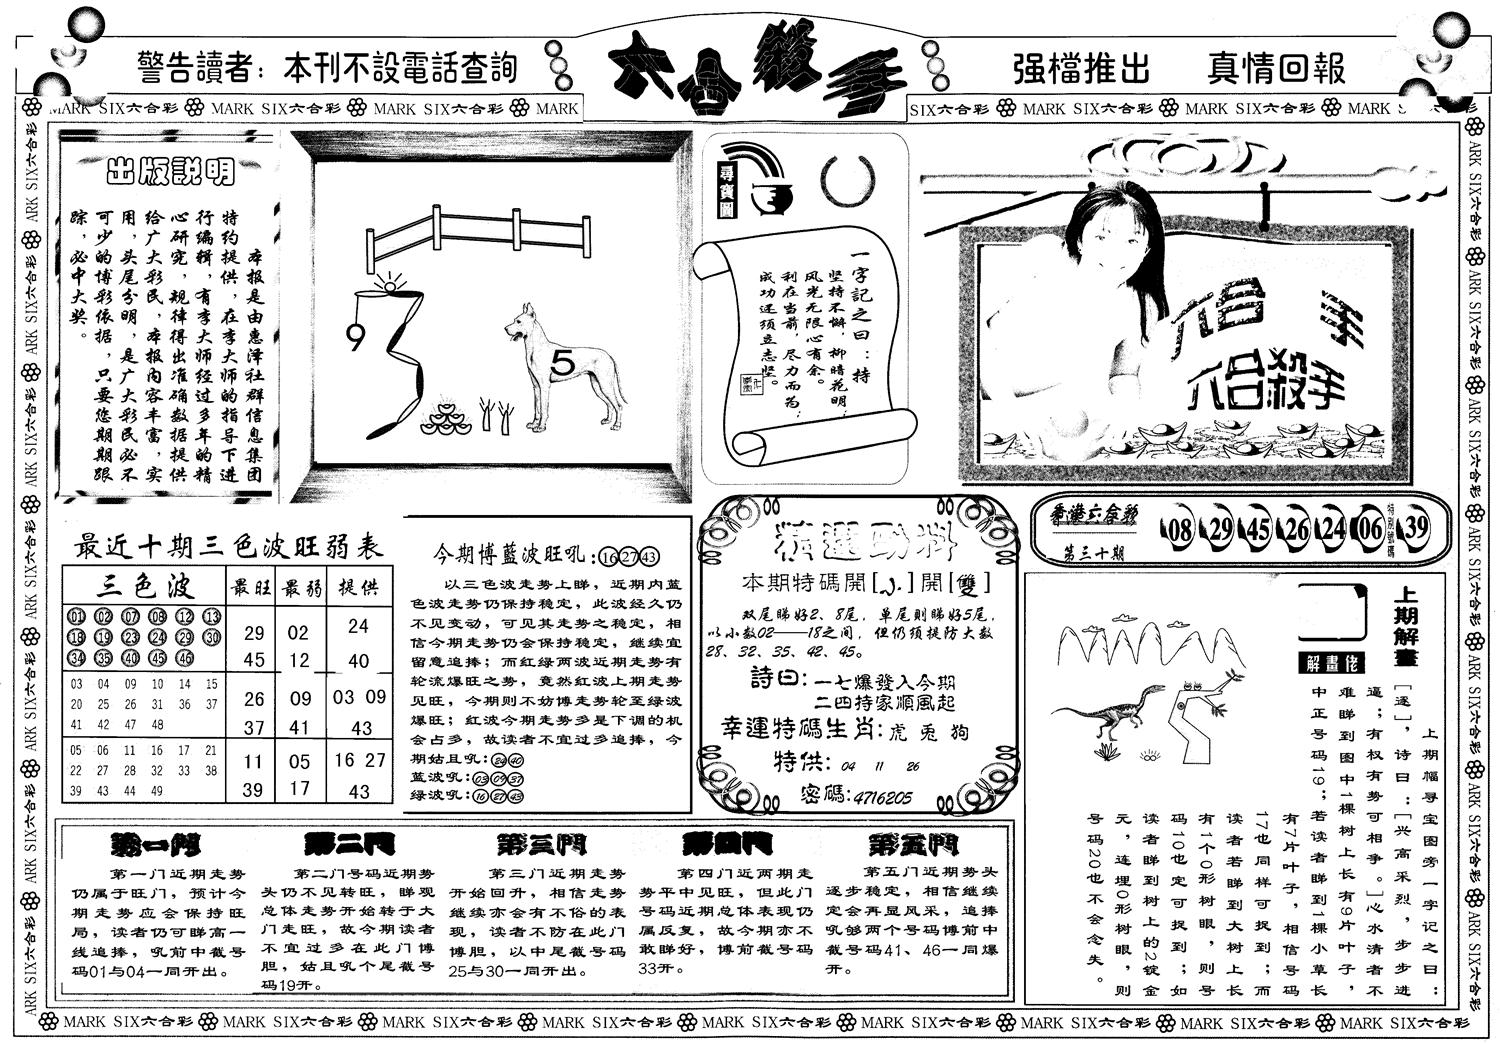 警告讀者：本刊不設電話查詢
六合殺手
强檔推出 真情回報
MARK SIX六合彩
出版説明
本报是由惠泽社群信息集团
特约提供，在李大师的指导下进
行编辑，有李大师经过多年的精
心研究，规律得出准确数据提供
给广大彩民，本报内容丰富，实
用，头尾分明，是广大彩民必不
可少的博彩依据，只要您期期跟
踪，必中大奖。
9
5
尋寶圖
一字記之曰：持
坚持不懈，柳暗花明，
风光无限心有余。
利在当前，尽力而为，
成功还须立志坚。
六合 手
六合殺手
香港六合彩
第三十期
08 29 45 26 24 06 特别號碼 39
最近十期三色波旺弱表
三色波 最旺 最弱 提供
01 02 07 08 12 13
18 19 23 24 29 30
34 35 40 45 46
29 02 24
45 12 40
03 04 09 10 14 15
20 25 26 31 36 37
41 42 47 48
26 09 03 09
37 41 43
05 06 11 16 17 21
22 27 28 32 33 38
39 43 44 49
11 05 16 27
39 17 43
今期博藍波旺吼：16 27 43
以三色波走势上睇，近期内蓝
色波走势仍保持稳定，此波经久仍
不见变动，可见其走势之稳定，相
信今期走势仍会保持稳定，继续宜
留意追捧；而红绿两波近期走势有
轮流爆旺之势，竟然红波上期走势
见旺，今期则不妨博走势轮至绿波
爆旺；红波今期走势多是下调的机
会占多，故读者不宜过多追捧，今
期姑且吼：24 40
蓝波吼：03 09 37
绿波吼：16 27 43
精選勁料
本期特碼開[小]開[雙]
双尾睇好2、8尾，单尾则睇好5尾，
以小数02——18之间，但仍须提防大数
28、32、35、42、45。
詩曰：一七爆發入今期
二四持家順風起
幸運特碼生肖：虎 兎 狗
特供：04 11 26
密碼：4716205
上期解畫
解畫佬
上期幅寻宝图旁一字记之曰：
[逐]，诗曰：[兴高采烈，步步进
逼；有权有势可相争。]心水清者不
难睇到图中1棵树上长有9片叶子，
中正号码19；若读者睇到1棵小草长
有7片叶子，相信号码
17也同样可捉到；而
读者若睇到大树上长
有1个0形树眼，则号
码10也定可捉到；如
读者睇到树上的2锭金
元，连埋0形树眼，则
号码20也不会念失。
第一門
第一门近期走势
仍属于旺门，预计今
期走势应会保持旺
局，读者仍可睇高一
线追捧，吼前中截号
码01与04一同开出。
第二門
第二门号码近期势
头仍不见转旺，睇观
总体走势开始转于大
门走旺，故今期读者
不宜过多在此门博
胆，姑且吼个尾截号
码19开。
第三門
第三门近期走势
开始回升，相信走势
继续亦会有不俗的表
现，读者不防在此门
博胆，以中尾截号码
25与30一同开出。
第四門
第四门近两期走
势平中见旺，但此门
号码近期总体表现仍
属反复，故今期亦不
敢睇好，博前截号码
33开。
第五門
第五门近期势头
逐步稳定，相信继续
定会再显风采，追捧
吼够两个号码博前中
截号码41、46一同爆
开。
MARK SIX六合彩